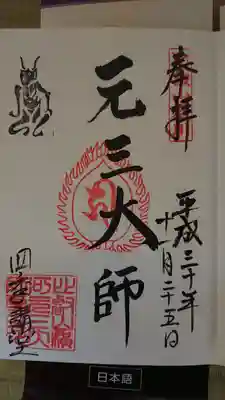 奉拝
平成三十年
十一月二十五日
元三大師
四季講堂
日本語